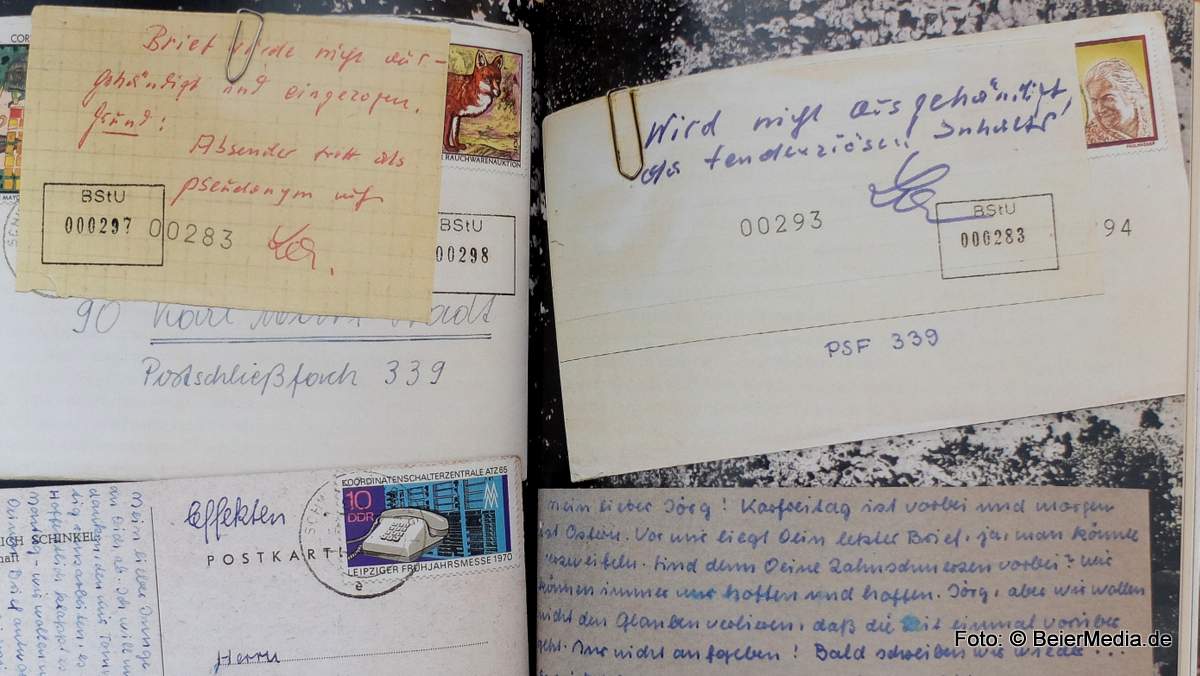 COR
Brief wurde nicht aus-
gehändigt und eingezogen.
Grund:
Absender tritt als
Pseudonym auf
BStU
000297
00283
RAUCHWARENAUKTION
BStU
00298
90 Karl Marx Stadt
Postschließfach 339
Wird nicht ausgehändigt,
da tendenziösen Inhalts
00293
BStU
000283
94
PSF 339
RICH SCHINKEL
haft
Effekten
POSTKARTE
KOORDINATENSCHALTERZENTRALE ATZ 65
10
DDR
LEIPZIGER FRÜHJAHRSMESSE 1970
Herrn
Mein lieber Junge
mein lieber Jörg! Karfreitag ist vorbei und morgen
ist Ostern. Vor mir liegt Dein letzter Brief, ja, man könnte
verzweifeln. Sind denn Deine Zahnschmerzen vorbei? Wir
können immer nur hoffen und hoffen. Jörg, aber wir wollen
nicht den Glauben verlieren, daß die Zeit einmal vorüber
geht. Nur nicht aufgeben! Bald schreiben wir wieder...
Foto: © BeierMedia.de